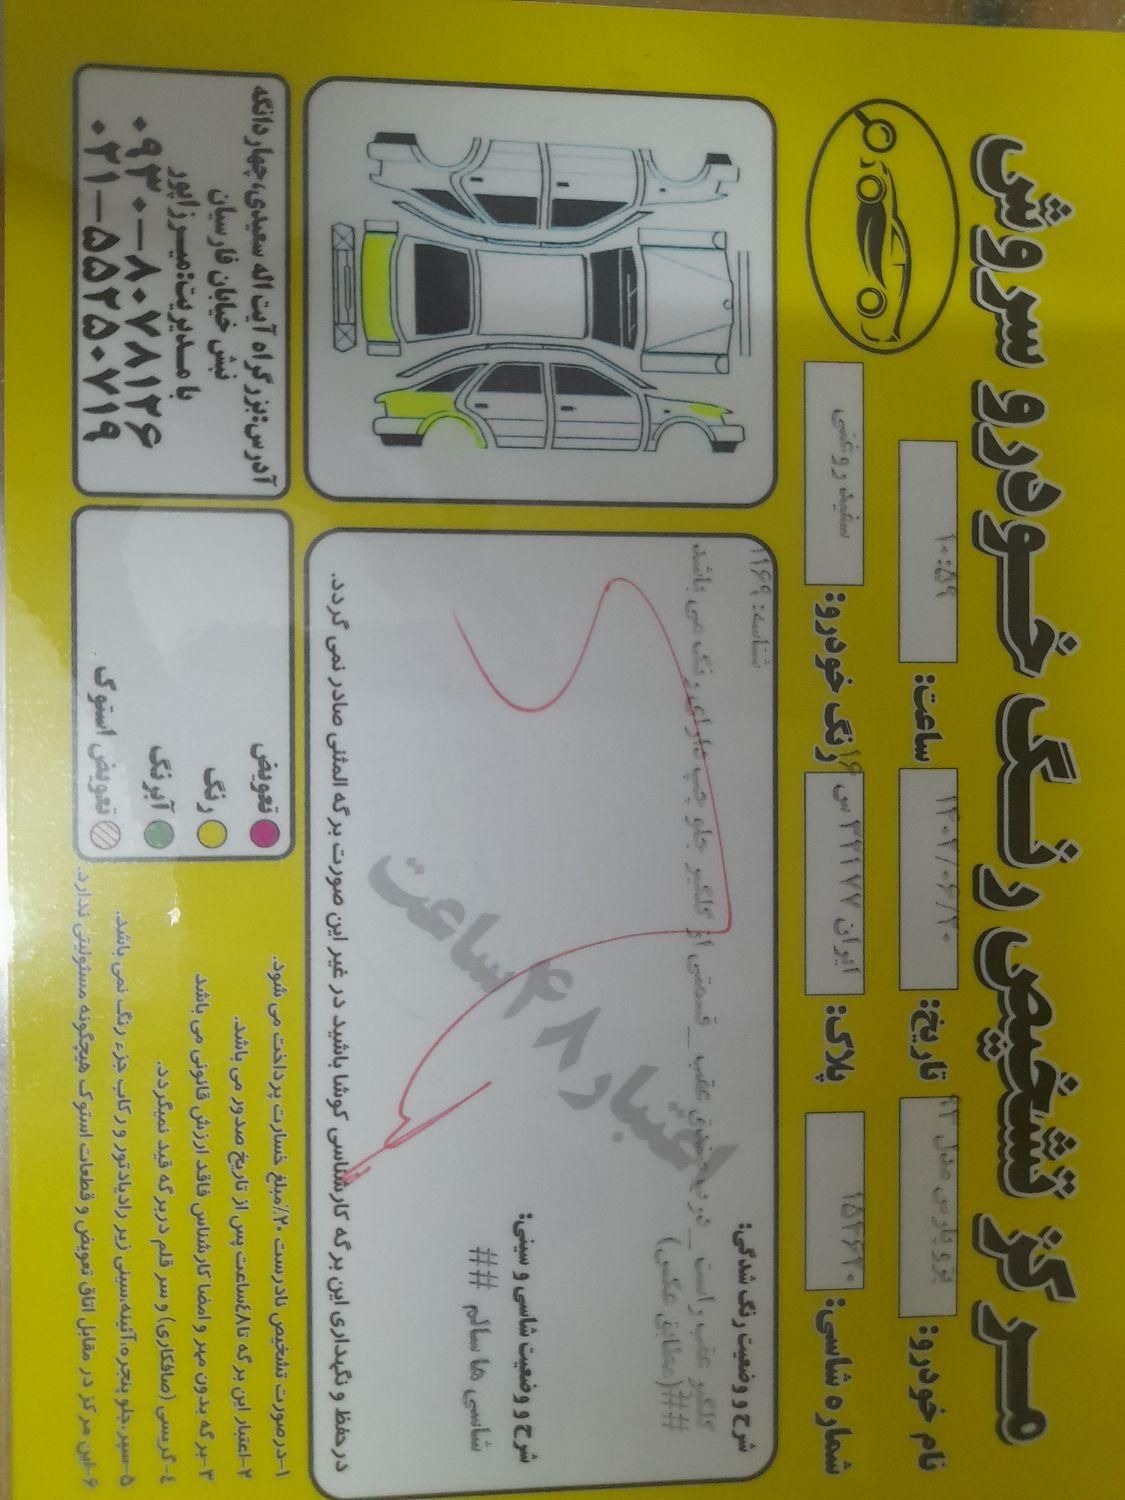 مرکز تشخیص رنگ خودرو سروش
نام خودرو: پژو پارس مدل ۹۳ تاریخ: ۱۴۰۴/۰۶/۲۰ ساعت: ۱۰:۵۹
شماره شاسی: ۱۵۴۶۴۰ پلاک: ایران ۷۷ رنگ خودرو: سفید روغنی
شناسه: ۱۱۶۹
شرح و وضعیت رنگ شدگی:
گلگیر عقب راست _ درب صندوق عقب _ قسمتی از گلگیر جلو چپ دارای رنگ می باشد
##(مطابق عکس)
شرح و وضعیت شاسی و سینی:
شاسی ها سالم ##
اعتبار ۴۸ ساعت
در حفظ و نگهداری این برگه کارشناسی کوشا باشید در غیر این صورت برگه المثنی صادر نمی گردد.
۱-در صورت تشخیص نادرست ۲۰٪ مبلغ خسارت پرداخت می شود.
۲-اعتبار این برگه تا ۴۸ ساعت پس از تاریخ صدور می باشد.
۳-برگه بدون مهر و امضا کارشناس فاقد ارزش قانونی می باشد
۴-گریسی (صافکاری) و سر قلم در برگه قید نمیگردد.
۵-سپر،جلو پنجره،آئینه،سینی زیر رادیاتور و رکاب جزء رنگ نمی باشد.
۶-این مرکز در مقابل اتاق تعویض و قطعات استوک هیچگونه مسئولیتی ندارد.
تعویض
رنگ
آبرنگ
تعویض استوک
آدرس:بزرگراه آیت اله سعیدی،چهاردانگه
نبش خیابان فارسیان
با مدیریت:میرزاپور
۰۹۳۰-۸۰۷۸۱۲۶
۰۲۱-۵۵۲۵۰۷۱۹